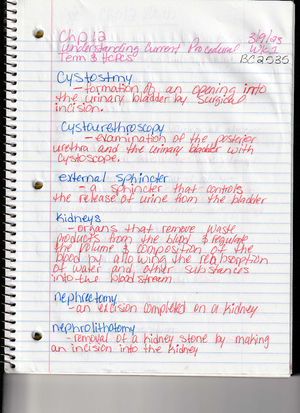 Chp 12 3/9/23
Understanding Current Procedural WK 1
Term & HCPCS BC2535
Cystostmy
- formation of an opening into
the urinary bladder by surgical
incision.
Cystourethroscopy
- examination of the posterior
urethra and the urinary bladder with
cystoscope.
external sphincter
- a sphincter that controls
the release of urine from the bladder
Kidneys
- organs that remove waste
products from the blood & regulate
the volume & composition of the
blood by allowing the reabsorption
of water and other substances
into the bloodstream
nephrectomy
- an excision completed on a kidney
nephrolithotomy
- removal of a kidney stone by making
an incision into the kidney